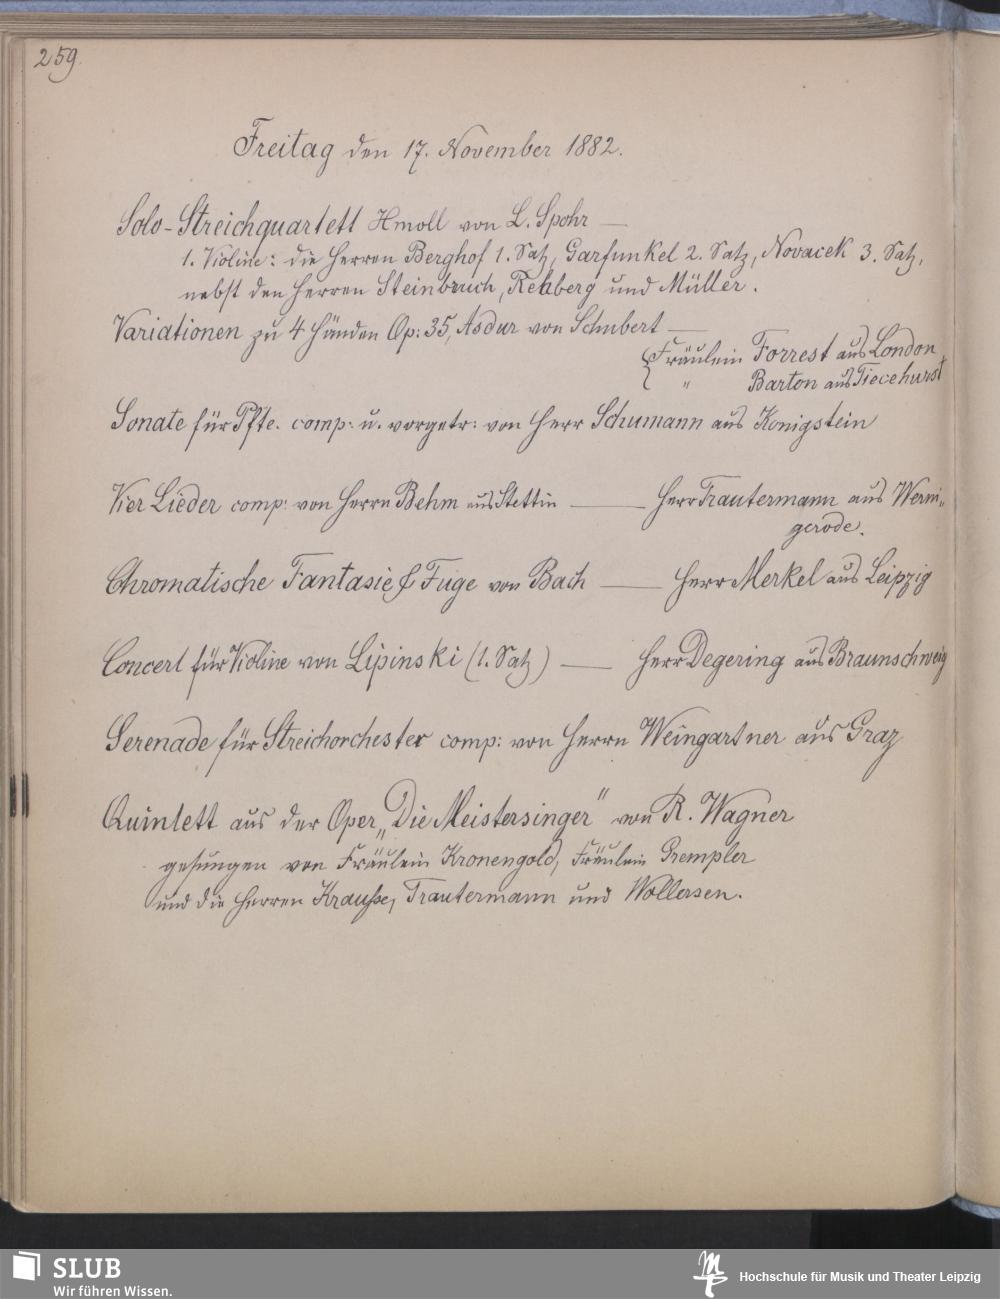 259.
Freitag den 17. November 1882.
Solo-Streichquartett Hmoll von L. Spohr —
1. Violine: die Herren Berghof 1. Satz, Garfunkel 2. Satz, Novacek 3. Satz,
nebst den Herren Steinbruch, Rehberg und Müller.
Variationen zu 4 Händen Op: 35, Asdur von Schubert —
Fräulein Forrest aus London
" Barton aus Ticehurst
Sonate für Pfte. comp: u. vorgetr: von Herr Schumann aus Königstein
Vier Lieder comp: von Herrn Behm aus Stettin — Herr Trautermann aus Werni„
gerode.
Chromatische Fantasie & Fuge von Bach — Herr Merkel aus Leipzig
Concert für Violine von Lipinski (1. Satz) — Herr Degering aus Braunschweig
Serenade für Streichorchester comp: von Herrn Weingartner aus Graz
Quintett aus der Oper „Die Meistersinger" von R. Wagner
gesungen von Fräulein Kronengold, Fräulein Grempler
und die Herren Krauße, Trautermann und Wollersen.
SLUB
Wir führen Wissen.
Hochschule für Musik und Theater Leipzig